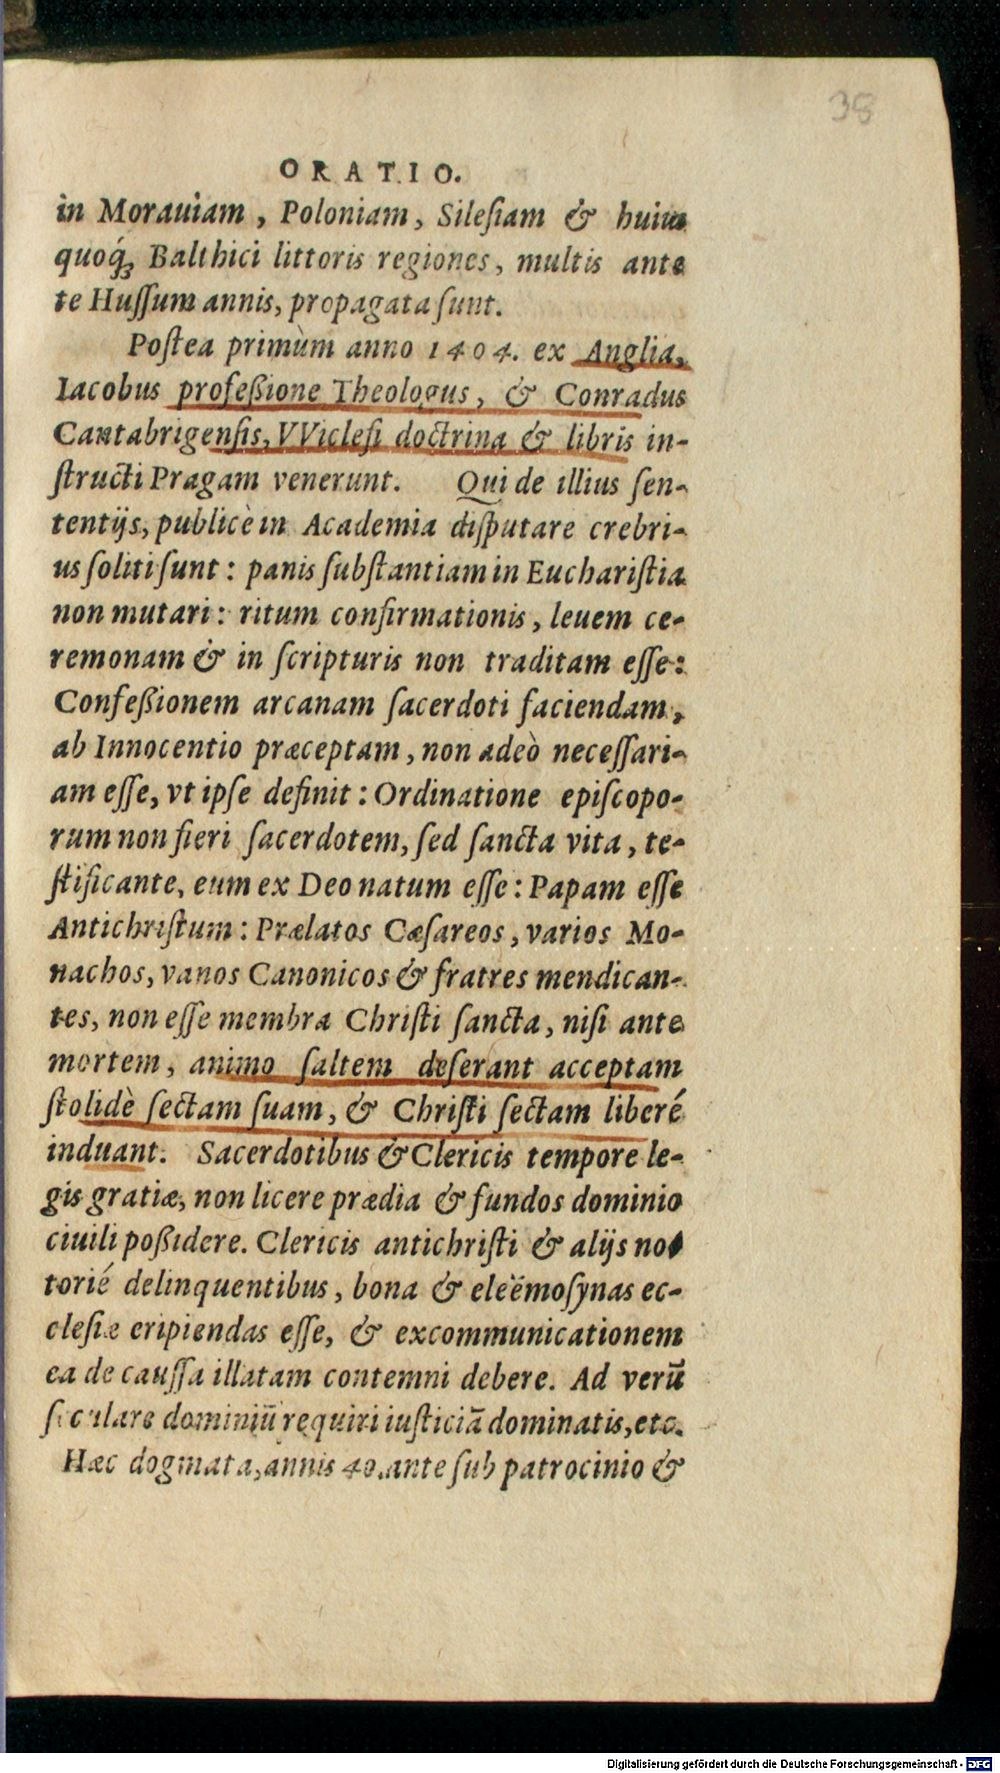 38
ORATIO.
in Morauiam, Poloniam, Silesiam & huius
quoq́₃ Balthici littoris regiones, multis ante
te Hussum annis, propagata sunt.
Postea primùm anno 1404. ex Anglia,
Iacobus profeßione Theologus, & Conradus
Cantabrigensis, VViclefi doctrina & libris in-
structi Pragam venerunt. Qui de illius sen-
tentijs, publicè in Academia disputare crebri-
us soliti sunt: panis substantiam in Eucharistia
non mutari: ritum confirmationis, leuem ce-
remonam & in scripturis non traditam esse:
Confeßionem arcanam sacerdoti faciendam,
ab Innocentio præceptam, non adeò necessari-
am esse, vt ipse definit: Ordinatione episcopo-
rum non fieri sacerdotem, sed sancta vita, te-
stificante, eum ex Deo natum esse: Papam esse
Antichristum: Prælatos Cæsareos, varios Mo-
nachos, vanos Canonicos & fratres mendican-
tes, non esse membra Christi sancta, nisi ante
mortem, animo saltem deserant acceptam
stolidè sectam suam, & Christi sectam liberé
induant. Sacerdotibus & Clericis tempore le-
gis gratiæ, non licere prædia & fundos dominio
ciuili poßidere. Clericis antichristi & alijs no-
torié delinquentibus, bona & eleëmosynas ec-
clesiæ eripiendas esse, & excommunicationem
ea de caussa illatam contemni debere. Ad verū
seculare dominiū requiri iusticiā dominatis, etc.
Hæc dogmata, annis 40. ante sub patrocinio &
Digitalisierung gefördert durch die Deutsche Forschungsgemeinschaft - DFG